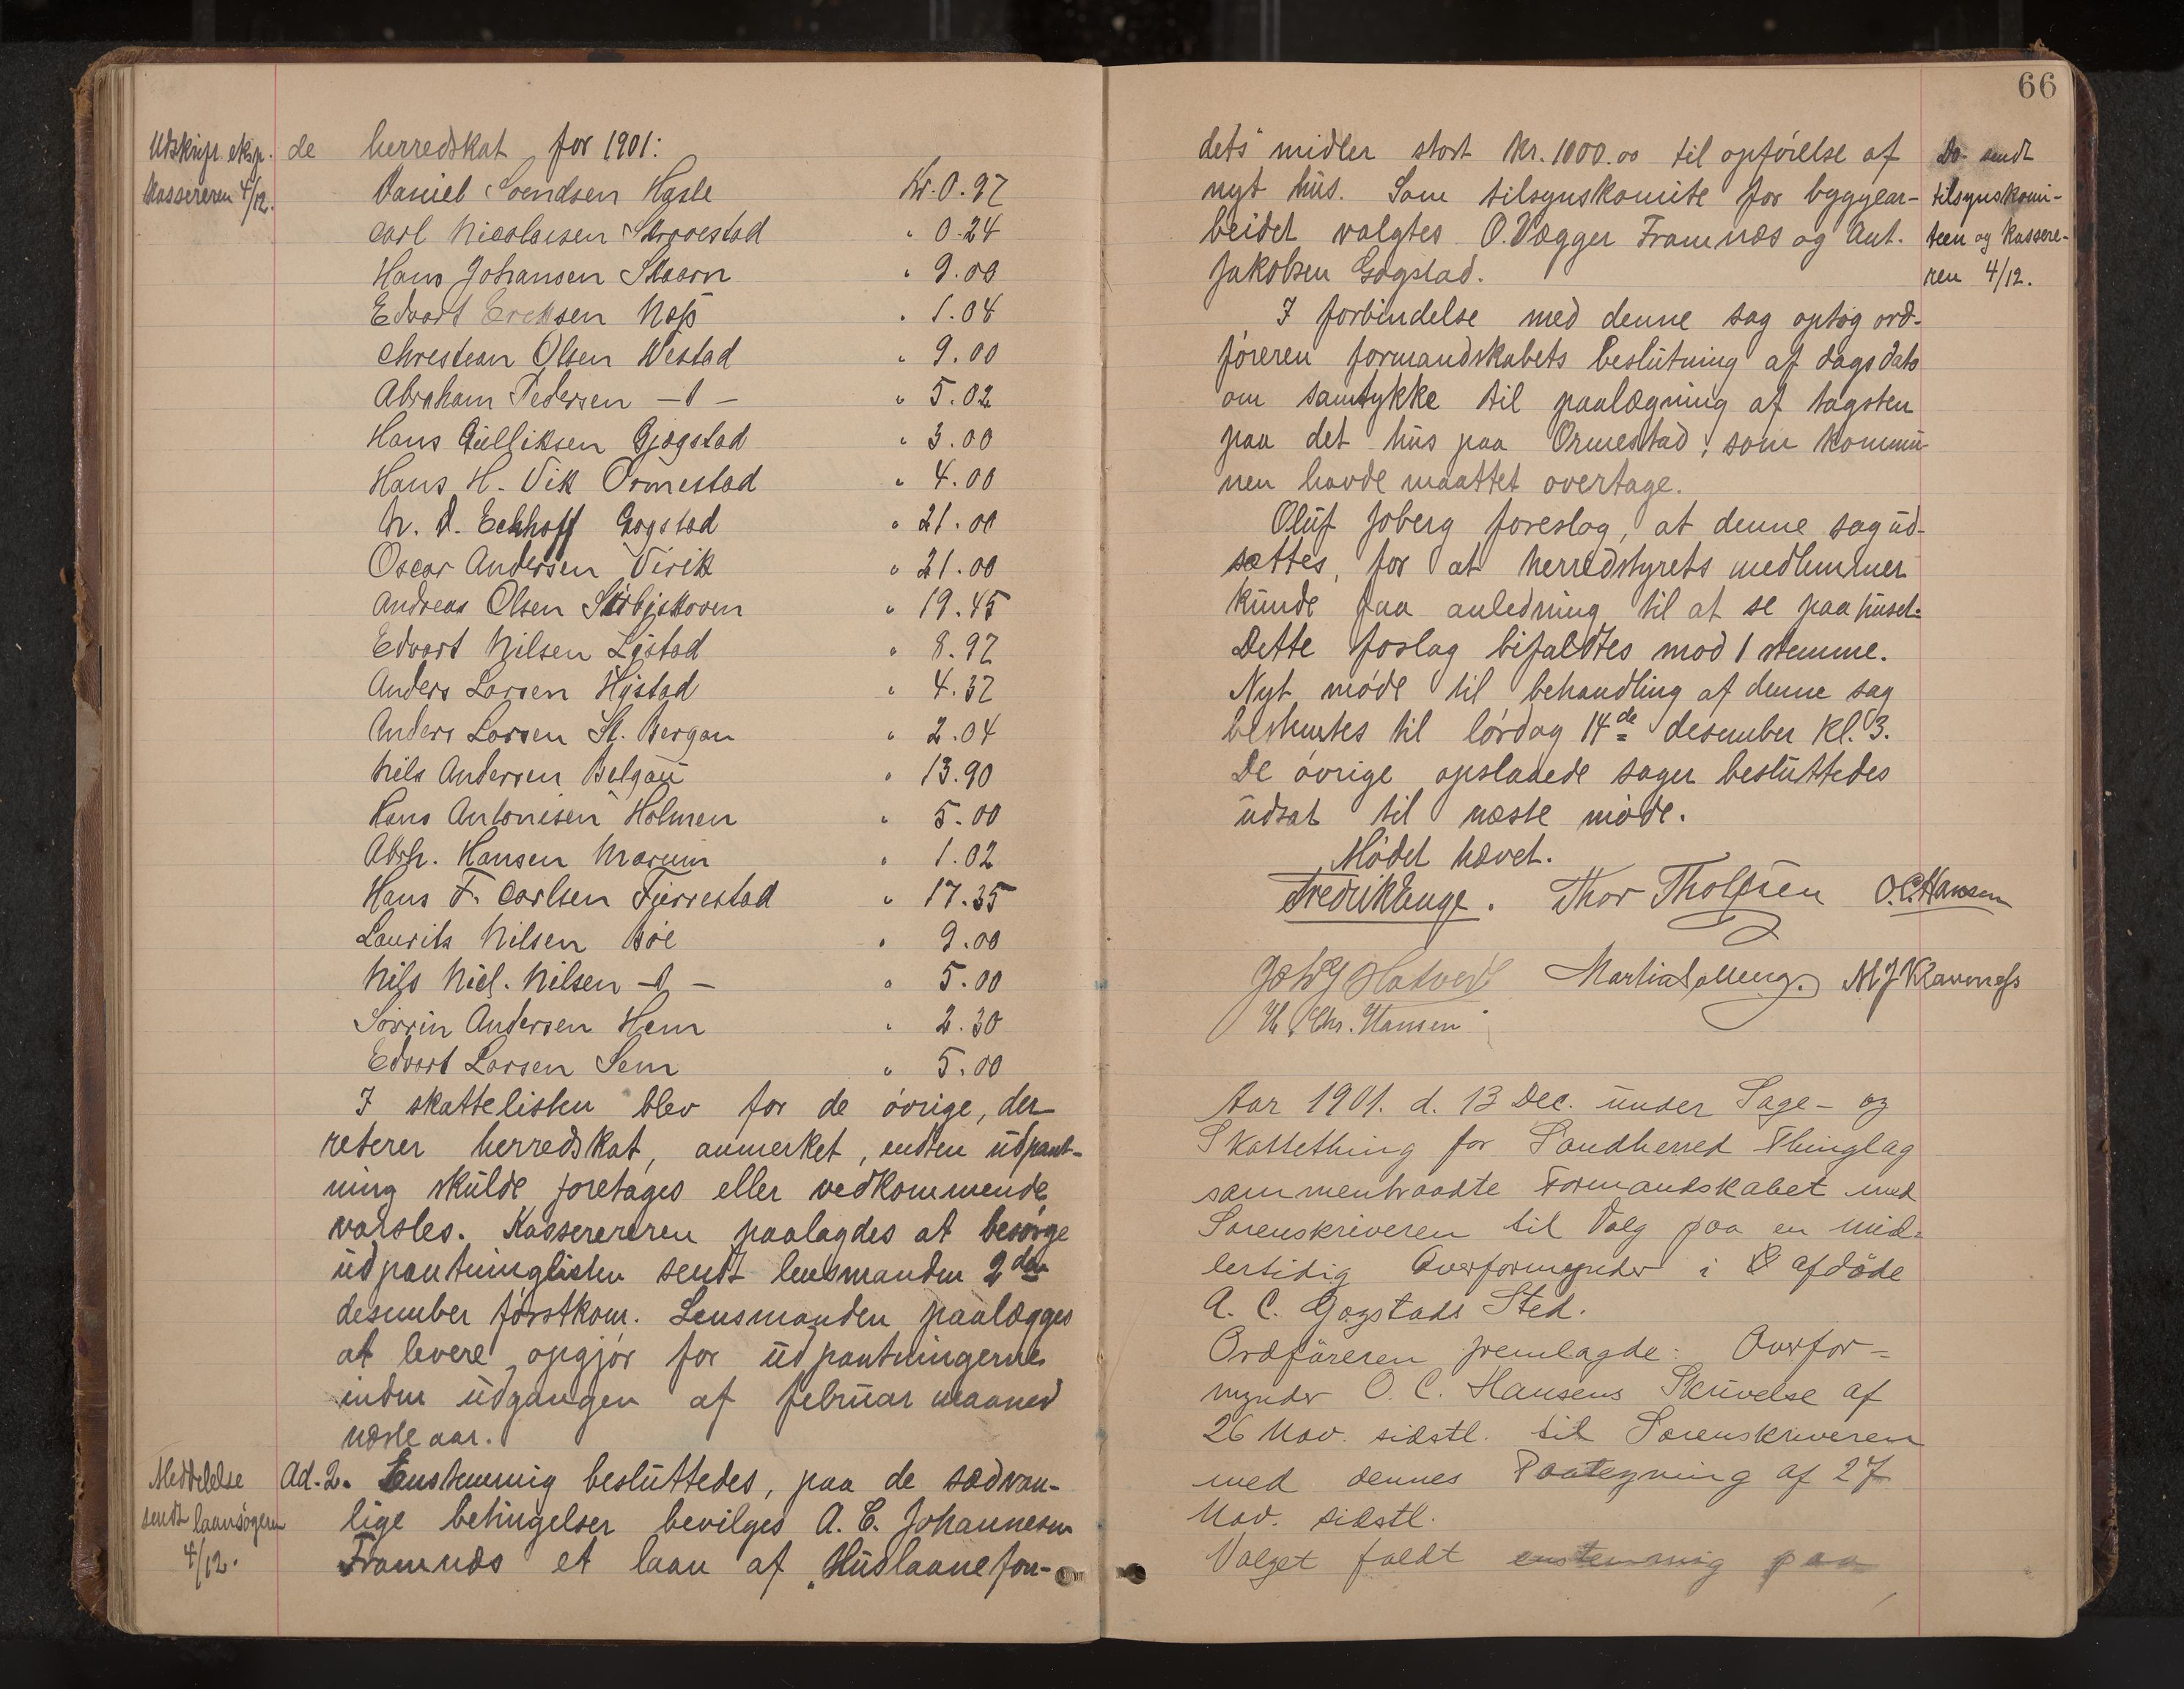 Udskrift eksp.
kassereren 4/12.
de herredskat for 1901:
Daniel Svendsen Hasle Kr. 0.97
Carl Nicolaisen " 0.24
Hans Johansen " 9.00
Edvart Ereksen " 1.04
Chrestean Olsen Westad " 9.00
Abraham Pedersen —"— " 5.02
Hans Gulliksen Gjøgstad " 3.00
Hans H. Vik Ormestad " 4.00
N. A. Eckhoff Gogstad " 21.00
Oscar Andersen Virik " 21.00
Andreas Olsen " 19.45
Edvart Nilsen " 8.97
Anders Larsen Hystad " 4.37
Anders Larsen St. Bergan " 2.04
Nils Andersen Belgau " 13.90
Hans Antonisen Holmen " 5.00
Abrh. Hansen Marum " 1.02
Hans F. Carlsen Furrestad " 17.35
Laurits Nilsen Bøe " 9.00
Nils Niel. Nilsen —"— " 5.00
Sørrin Andersen Hem " 2.30
Edvart Larsen Sem " 5.00
I skattelisten blev for de øvrige, der
resterer herredskat, anmerket, enten udpant-
ning skulde foretages eller vedkommende
varsles. Kasserereren paalagdes at besørge
udpantninglisten sendt lensmanden 2den
desember førstkom. Lensmanden paalægges
at levere opgjør for udpantningerne
inden udgangen af februar maaned
næste aar.
Meddelelse
sendt laansøgeren
4/12.
Ad. 2. Enstemmig besluttedes, paa de sædvan-
lige betingelser bevilges A. C. Johannesen
Framnæs et laan af „Huslaanefon-
66
dets" midler stort Kr. 1000.00 til opførelse af
nyt hus. Som tilsynskomite for byggear-
beidet valgtes O. Vægger Framnæs og Ant.
Jakobsen Gogstad.
Do sendt
tilsynskomi-
teen og kassere-
ren 4/12.
I forbindelse med denne sag optog ord-
føreren formandskabets beslutning af dags dato
om samtykke til paalægning af tagsten
paa det hus paa Ormestad, som kommu-
nen havde maattet overtage.
Oluf Joberg foreslog, at denne sag ud-
sættes, for at herredstyrets medlemmer
kunde faa anledning til at se paa huset.
Dette forslag bifaldtes mod 1 stemme.
Nyt møde til behandling af denne sag
bestemtes til lørdag 14de desember kl. 3.
De øvrige opslaaede sager besluttedes
udsat til næste møde.
Mødet hævet.
Fredrik Enge. Thor Tholfsen O. C. Hansen
M J Klavness
H. Chr. Hansen
Aar 1901. d. 13 Dec. under Sage- og
Skattething for Sandherred Thinglag
sammentraadte Formandskabet med
Sorenskriveren til Valg paa en mid-
lertidig Overformynder i afdøde
A. C. Gogstads Sted.
Ordføreren fremlagde: Overfor-
mynder O. C. Hansens Skrivelse af
26 Nov. sidstl. til Sorenskriveren
med dennes Paategning af 27
Nov. sidstl.
Valget faldt enstemmig paa